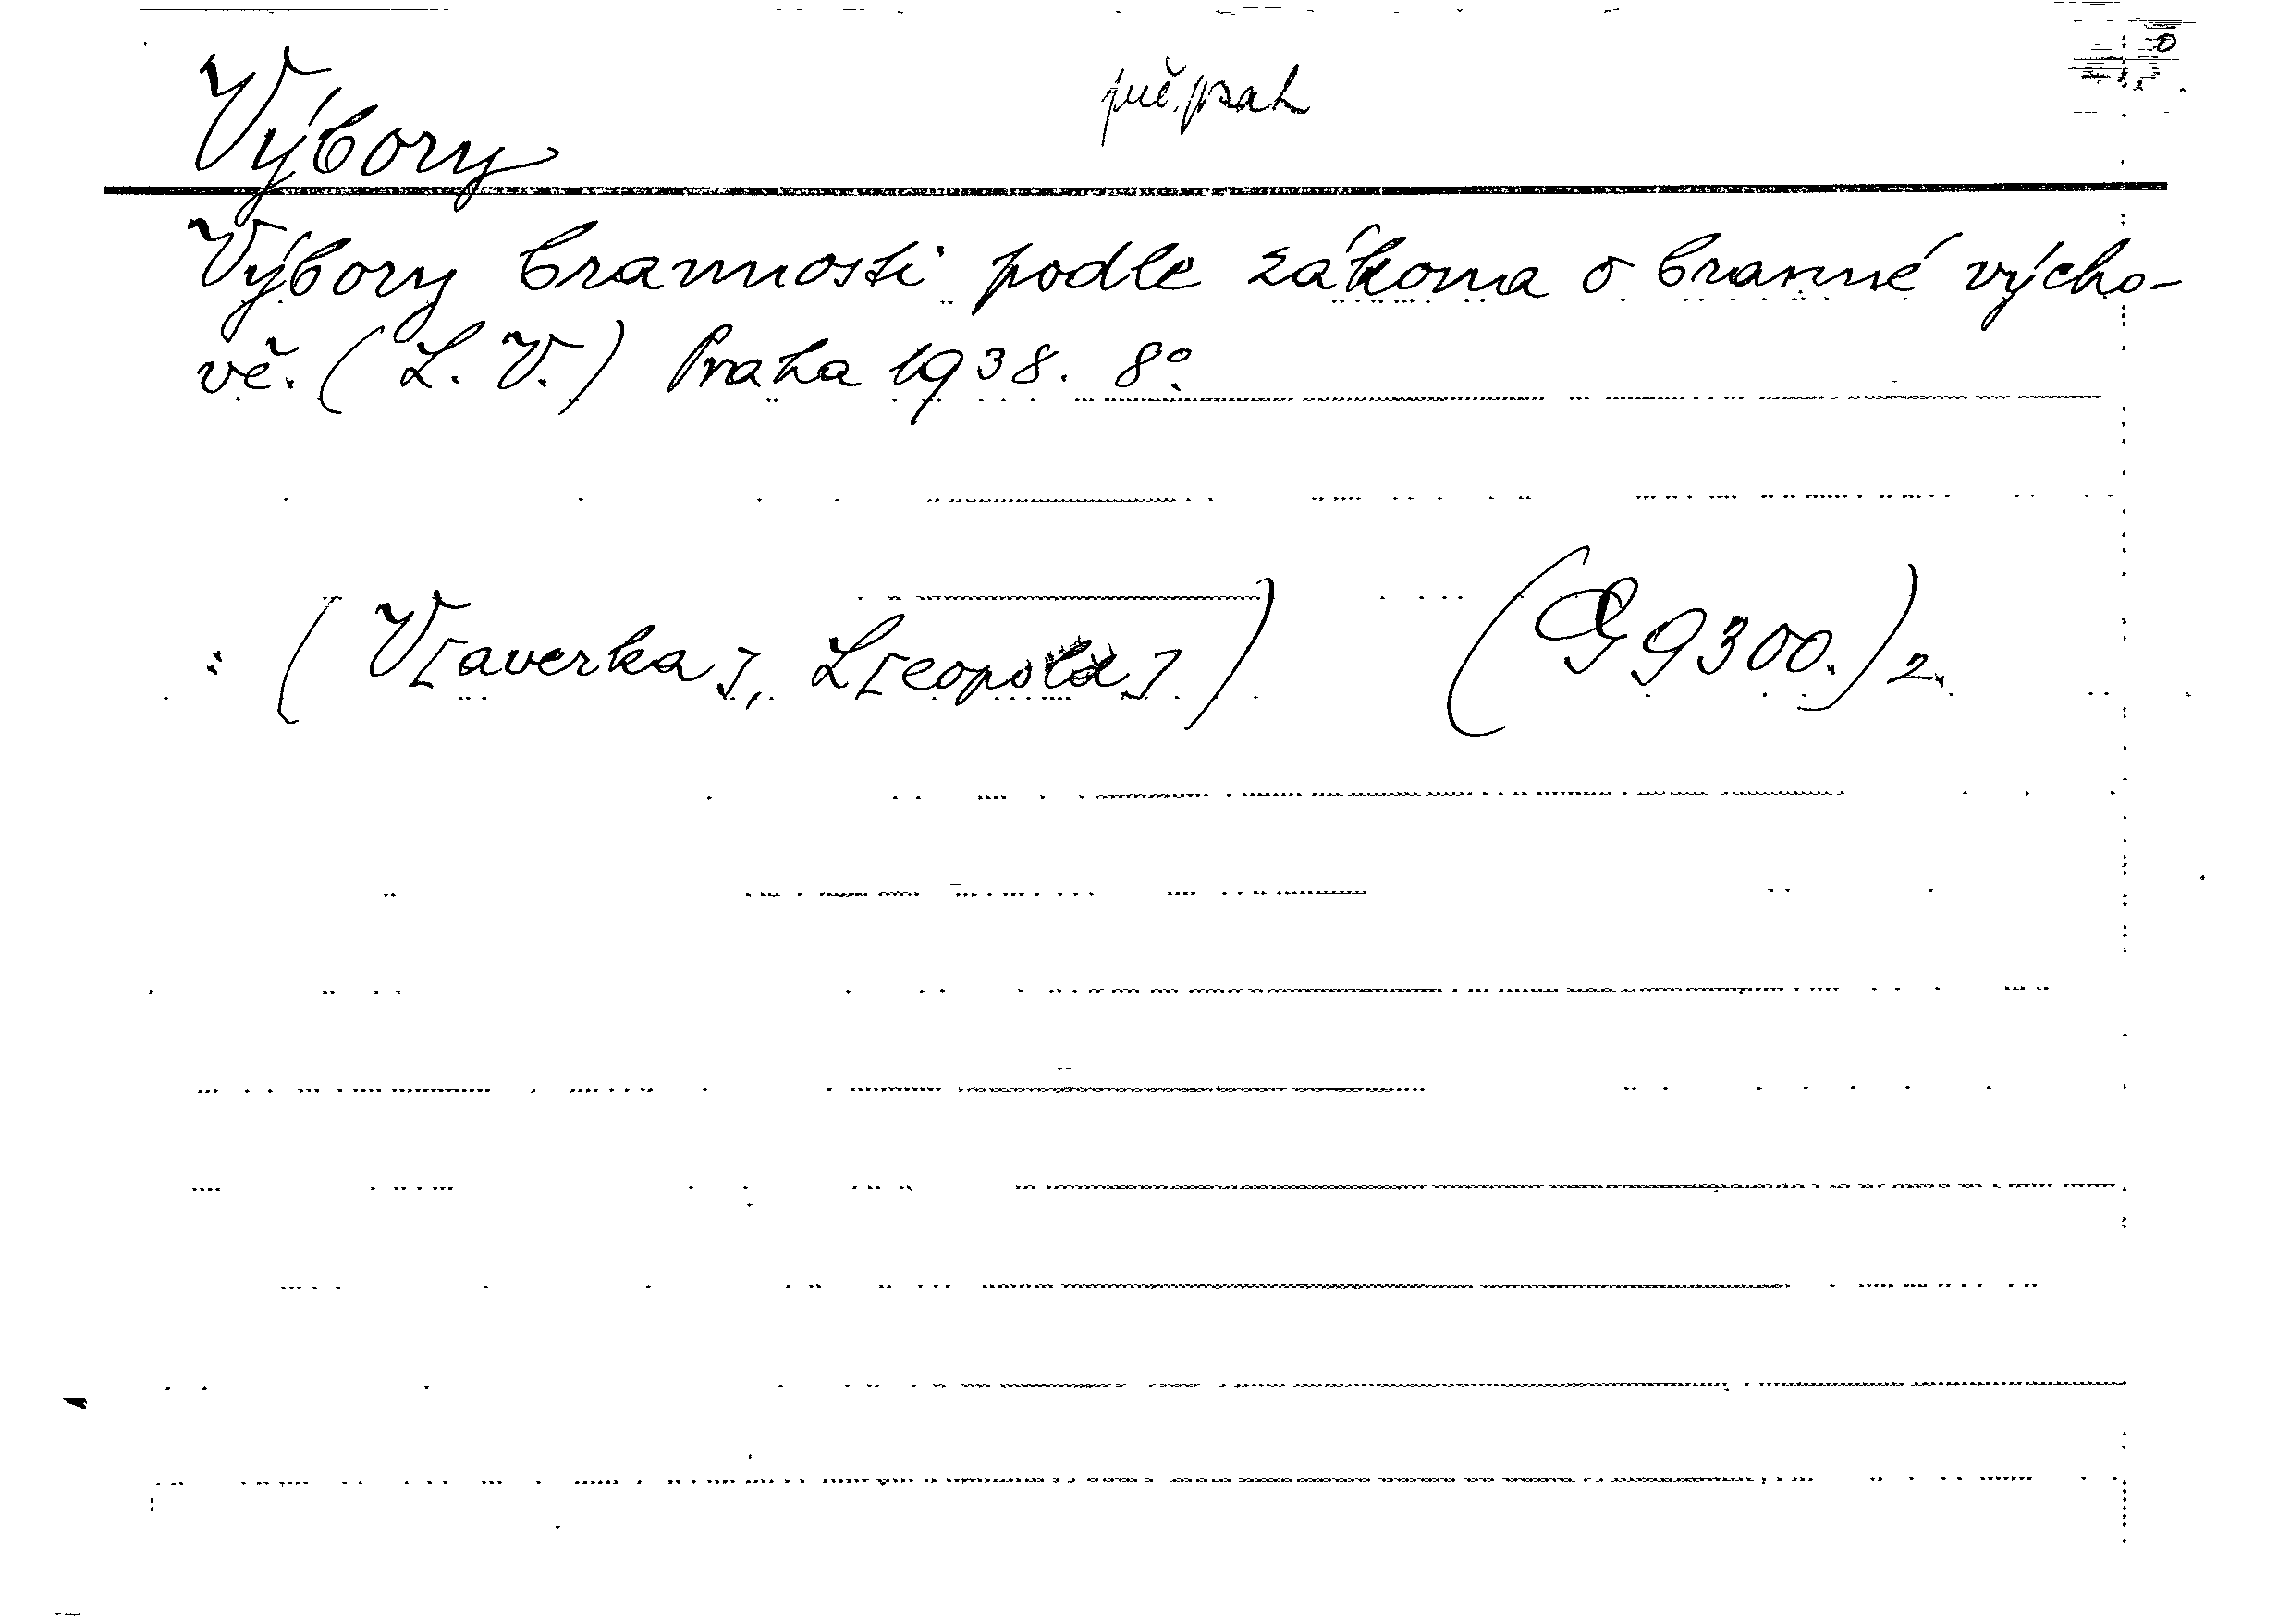 Výbory
Výbory brannosti podle zákona o branné výcho-
vě. (L. V.) Praha 1938. 8°.
: (V[averka], L[eopold].) (G 9300.) 2.